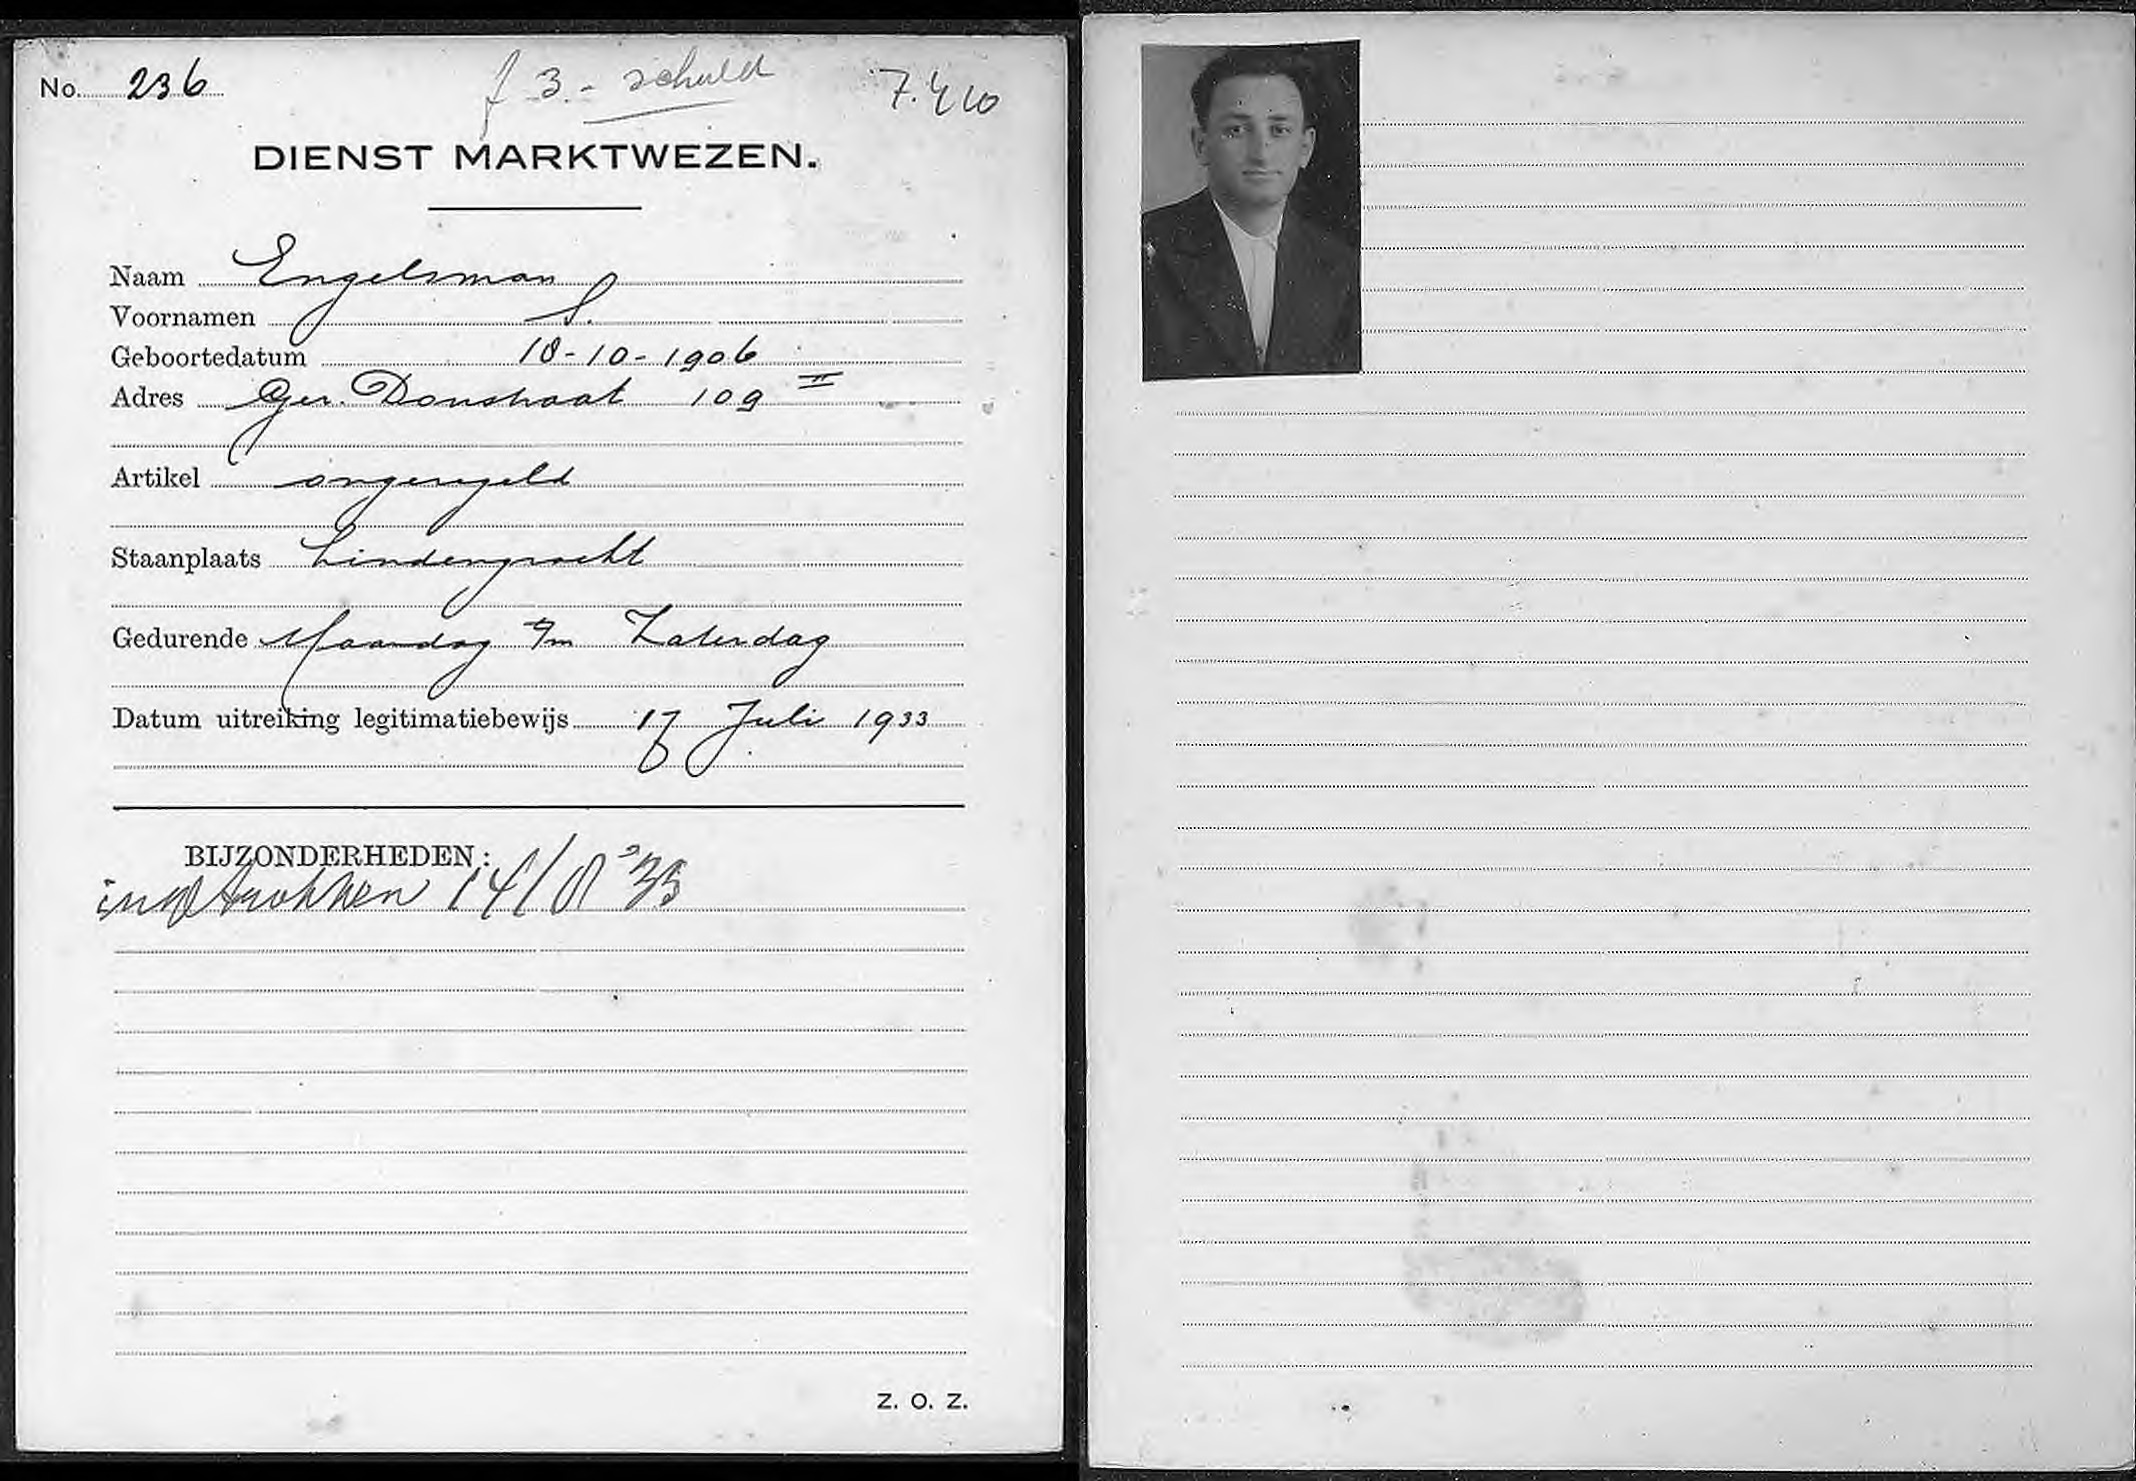 No. 236
f 3.- schuld
DIENST MARKTWEZEN.
Naam Engelsman
Voornamen S.
Geboortedatum 18-10-1906
Adres Ger. Doustraat 109 II
Artikel ongeregeld
Staanplaats Lindengracht
Gedurende Maandag t/m Zaterdag
Datum uitreiking legitimatiebewijs 17 Juli 1933
BIJZONDERHEDEN:
ingetrokken
Z. O. Z.